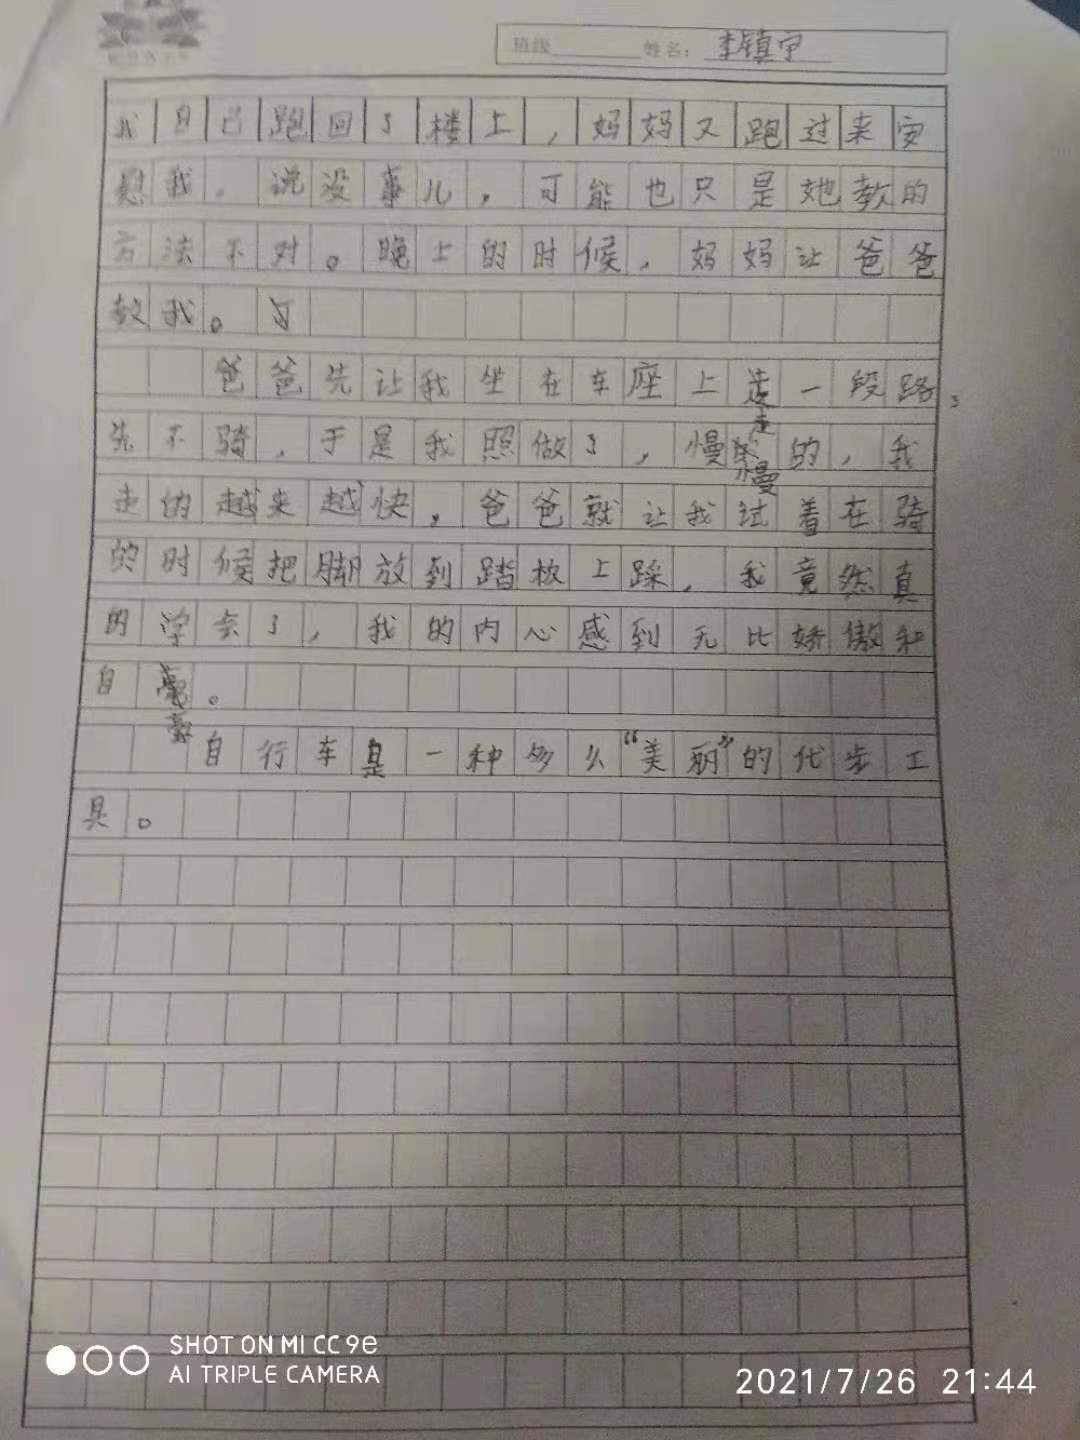 班级 姓名: 李镇宇
我自己跑回了楼上,妈妈又跑过来安
慰我。说没事儿,可能也只是她教的
方法不对。晚上的时候,妈妈让爸爸
教我。
爸爸先让我坐在车座上走一段路,
先不骑,于是我照做了,慢慢的,我
走的越来越快,爸爸就让我试着在骑
的时候把脚放到踏板上踩,我竟然真
的学会了,我的内心感到无比娇傲和
自豪。
自行车是一种多么“美丽”的代步工
具。
SHOT ON MI CC 9e
AI TRIPLE CAMERA
2021/7/26 21:44